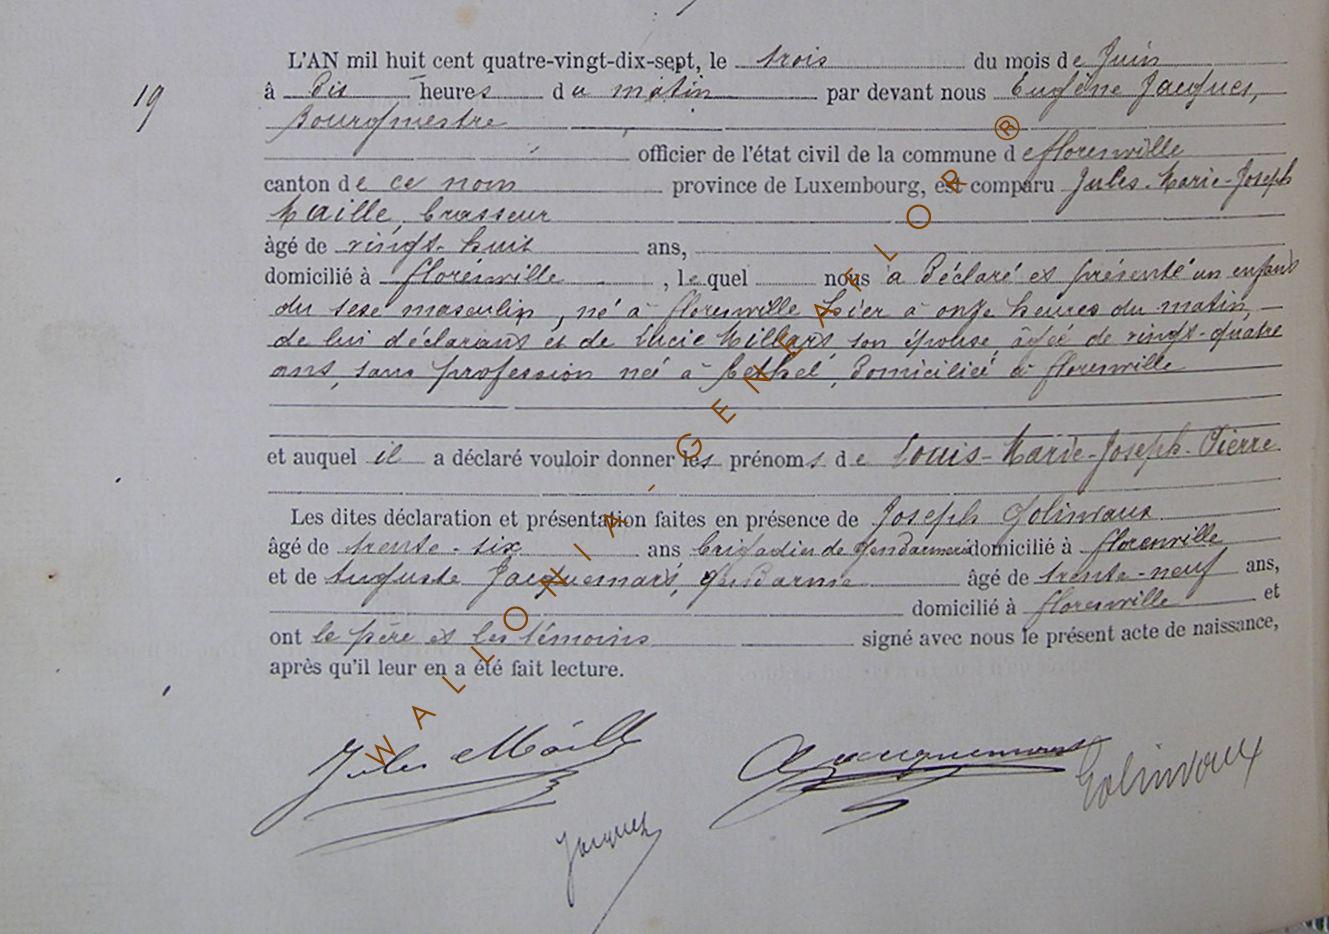 L'AN mil huit cent quatre-vingt-dix-sept, le trois du mois de Juin
19
à Dix heures du matin par devant nous Eugène Jacques,
Bourgmestre
officier de l'état civil de la commune de florenville
canton de ce nom province de Luxembourg, est comparu Jules-Marie-Joseph
Maillé, brasseur
âgé de vingt-huit ans,
domicilié à florenville, lequel nous a déclaré et présenté un enfant
du sexe masculin, né à florenville hier à onze heures du matin,
de lui déclarant et de Lucie Millard, son épouse, âgée de vingt-quatre
ans, sans profession née à Rethel, Domiciliée à florenville
et auquel il a déclaré vouloir donner les prénoms de Louis-Marie-Joseph-Pierre
Les dites déclaration et présentation faites en présence de Joseph Golinvaux
âgé de trente-six ans brigadier de Gendarmerie domicilié à florenville
et de Auguste Jacquemart, Gendarme âgé de trente-neuf ans,
domicilié à florenville et
ont le père et les témoins signé avec nous le présent acte de naissance,
après qu'il leur en a été fait lecture.
Jules Maillé
Jacquemart
Golinvaux
Jacques
WALLONIA - GENEAFLOR ®